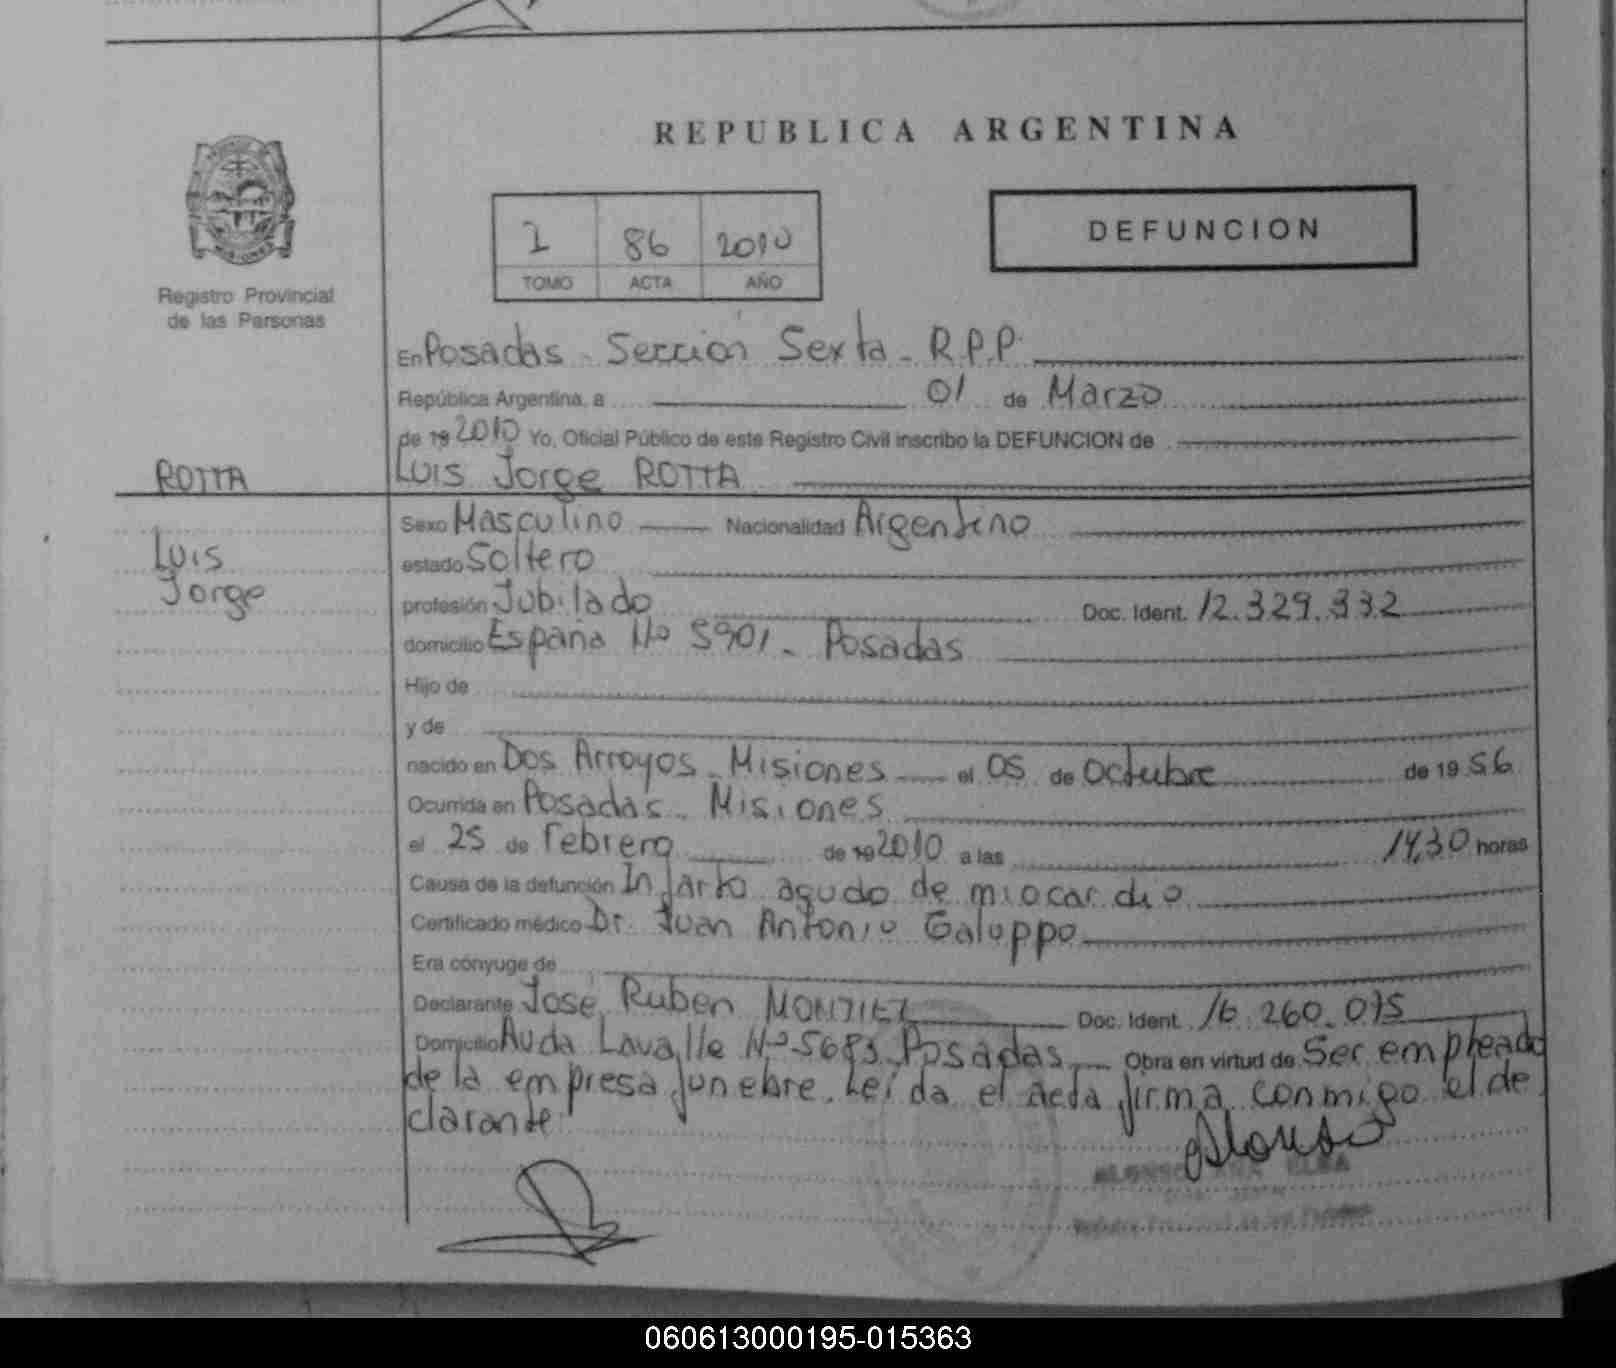 REPUBLICA ARGENTINA
1 86 2010
TOMO ACTA AÑO
DEFUNCION
Registro Provincial
de las Personas
En Posadas - Sección Sexta - R.P.P.
República Argentina, a 01 de Marzo
de 19 2010 Yo, Oficial Público de este Registro Civil inscribo la DEFUNCION de
ROTTA
Luis Jorge ROTTA
Luis
Jorge
Sexo Masculino Nacionalidad Argentino
estado Soltero
profesión Jubilado Doc. Ident. 12.329.332
domicilio España Nº 5901 - Posadas
Hijo de
y de
nacido en Dos Arroyos - Misiones el 05 de Octubre de 19 56
Ocurrida en Posadas - Misiones
el 25 de Febrero de 19 2010 a las 14,30 horas
Causa de la defunción Infarto agudo de miocardio
Certificado médico Dr. Juan Antonio Galuppo
Era cónyuge de
Declarante José Ruben MONTIEL Doc. Ident. 16.260.075
Domicilio Avda Lavalle Nº 5683 Posadas Obra en virtud de Ser empleado
de la empresa funebre. Leida el acta firma conmigo el de
clarante
Alonso
ALONSO ANA ELBA
060613000195-015363